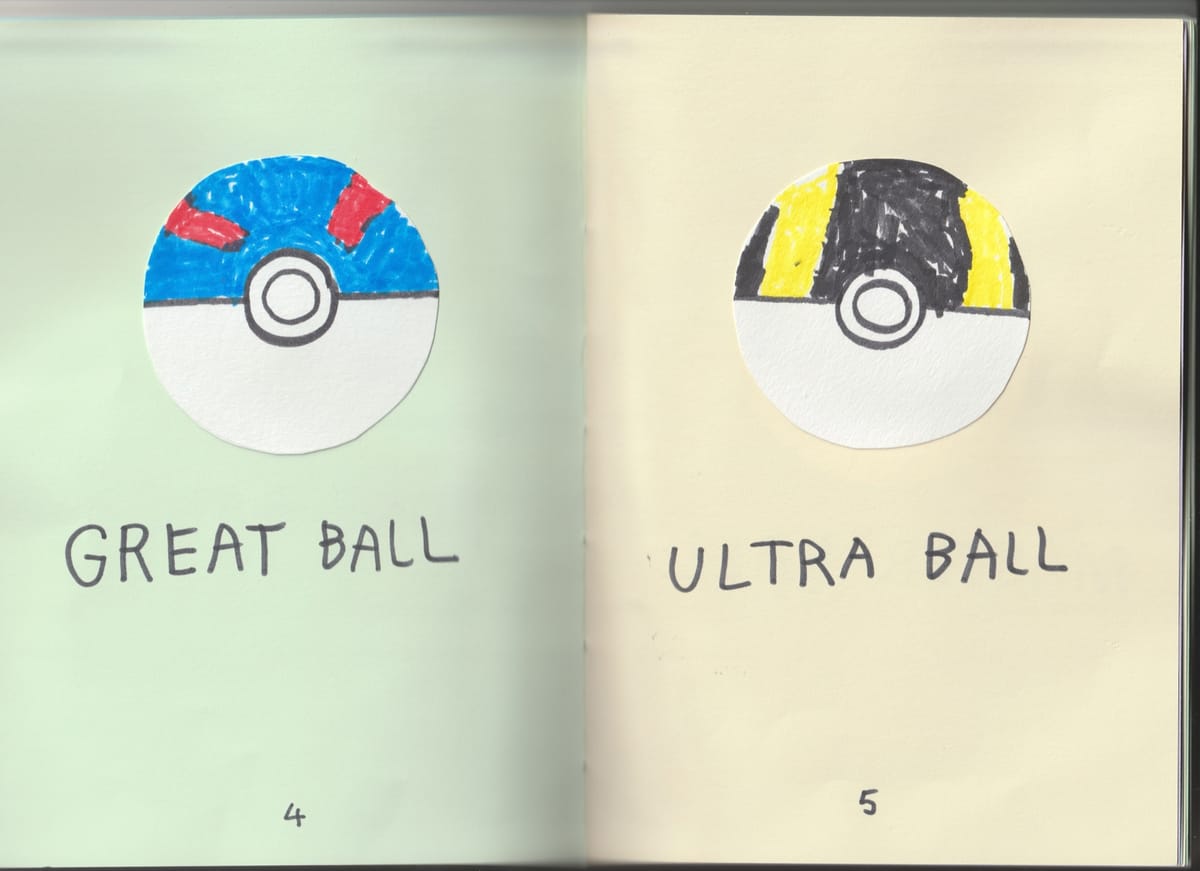 GREAT BALL
4
ULTRA BALL
5